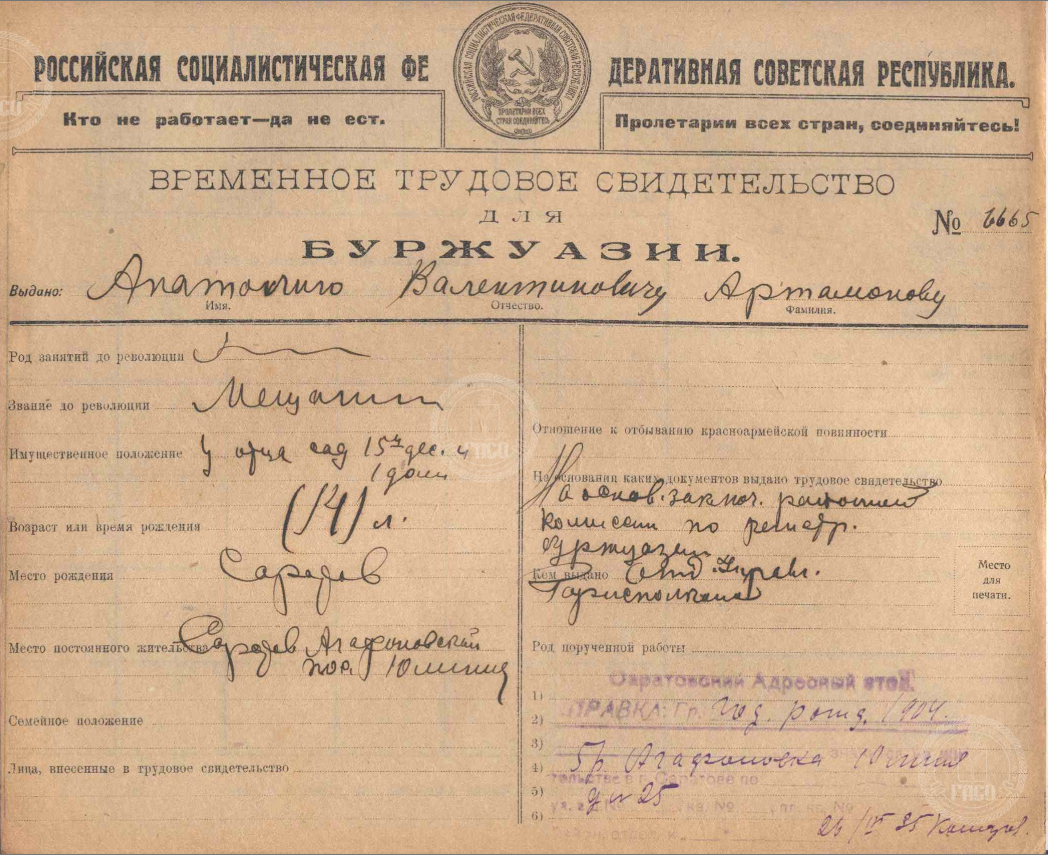 РОССИЙСКАЯ СОЦИАЛИСТИЧЕСКАЯ ФЕДЕРАТИВНАЯ СОВЕТСКАЯ РЕСПУБЛИКА.
Кто не работает—да не ест.
Пролетарии всех стран, соединяйтесь!
ВРЕМЕННОЕ ТРУДОВОЕ СВИДЕТЕЛЬСТВО
ДЛЯ
БУРЖУАЗИИ.
№ 6665
Выдано: Анатолию Валентиновичу Артамонову
Имя. Отчество. Фамилия.
Род занятий до революции
Звание до революции Мещанин
Имущественное положение У отца сад 15 дес. и
1 дом
Возраст или время рождения (14) л.
Место рождения Саратов
Место постоянного жительства Саратов Агафоновский
пос.
Семейное положение
Лица, внесенные в трудовое свидетельство
Отношение к отбыванию красноармейской повинности
На основании каких документов выдано трудовое свидетельство
На основ. заключ. районной
комиссии по регистр.
буржуазии
Кем выдано Отд. Управл.
Горисполкома
Место
для
печати.
Род порученной работы
Саратовский Адресный стол.
1)
2) СПРАВКА: Гр. Год. рожд. 1904.
3)
4) Агафоновка
тельстве в г. Саратове по
5) д № 25
ул. кв. №
6) 26/IV 35
ГАСО